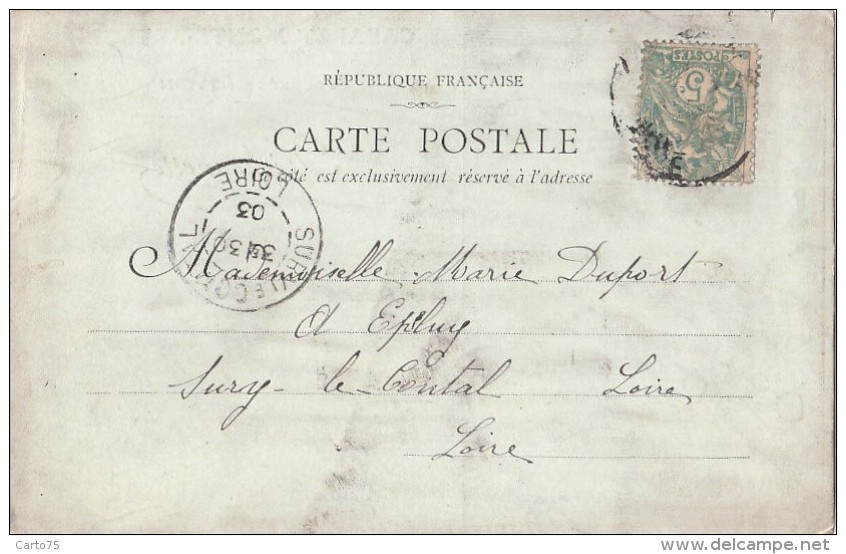 RÉPUBLIQUE FRANÇAISE
CARTE POSTALE
côté est exclusivement réservé à l'adresse
POSTES
5
LOIRE
03
30
SURY
Mademoiselle Marie Duport
Sury-le-Comtal Loire
Loire
Carto75
www.delcampe.net